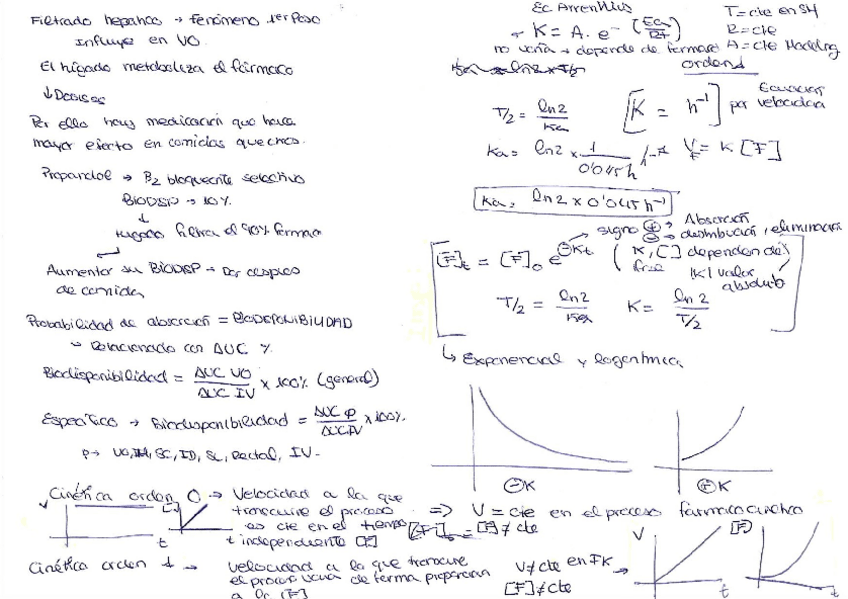 Filtrado hepático → fenómeno 1er Paso
Influye en VO.
El hígado metaboliza el fármaco
↓ Dosis
Por ello hay medicación que hace
mayor efecto en comidas que otros.
Propanolol → β2 bloqueante selectivo
BIODISP → 10%
↓
hígado filtra el 90% fármaco
Aumentar su BIODISP → Dar después
de comida
Probabilidad de absorción = BIODISPONIBILIDAD
Relacionado con AUC %
Biodisponibilidad = AUC VO / AUC IV × 100% (general)
Específico → Biodisponibilidad = AUC P / AUC IV × 100%
P → VO, IM, SC, ID, SL, Rectal, IV.
Cinética orden 0 → Velocidad a la que
transcurre el proceso
es cte en el tiempo
t independiente [F]
t
t
Cinética orden 1 → velocidad a la que transcurre
el proceso varía de forma proporción
a la [F]
Ec Arrenhius
K = A. e-(Ea/RT)
no varía → depende de fármaco
T = cte en SH
R = cte
A = cte
orden 1
T/2 = ln2 / Ka
[K = h⁻¹]
Ecuación
por velocidad
Ka = ln2 × 1 / 0'045 h
V = K [F]
Ka = ln2 × 0'045 h⁻¹
signo ⊕ → Absorción
⊖ → distribución, eliminación
[F]t = [F]o e⊖Kt
(K, [ ] dependen de
|K| valor
absoluto
T/2 = ln2
K = ln2 / T/2
↳ Exponencial y logarítmica
⊖K
⊕K
=> V = cte en el proceso farmacocinético
[F] ≠ cte
V ≠ cte en FK →
[F] ≠ cte
V
t
[F]
t